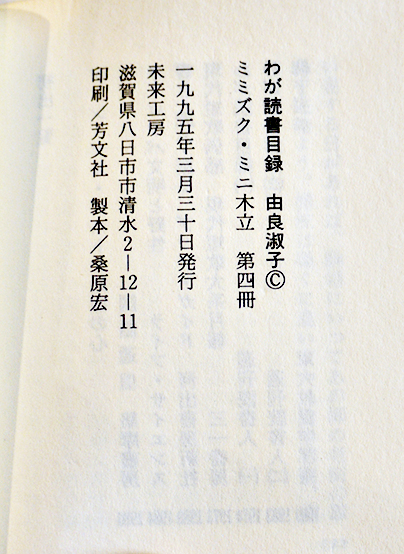 わが読書目録 由良淑子©
ミミズク・ミニ木立 第四冊
一九九五年三月三十日発行
未来工房
滋賀県八日市市清水2―12―11
印刷/芳文社 製本/桑原宏